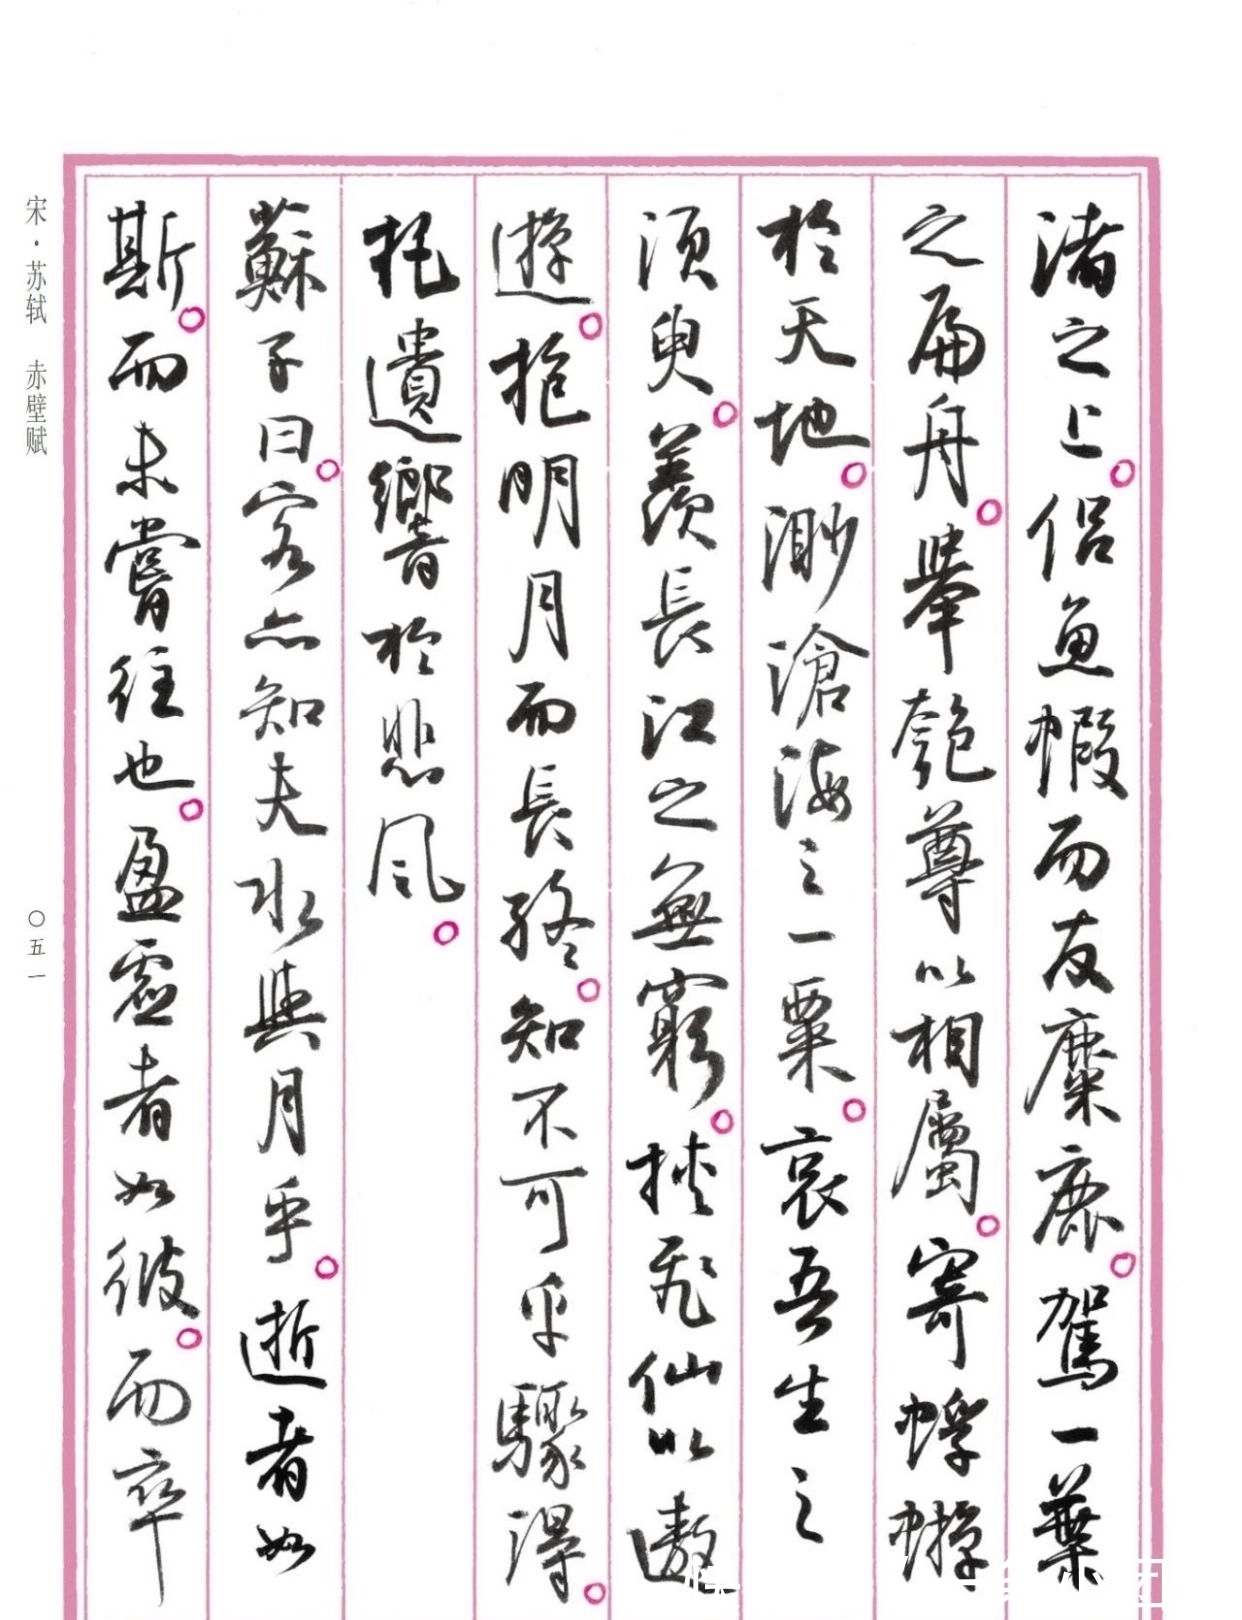 渚之上。侣魚蝦而友麋鹿。駕一葉
之扁舟。舉匏尊以相屬。寄蜉蝣
於天地。渺滄海之一粟。哀吾生之
須臾。羨長江之無窮。挟飛仙以遨
遊。抱明月而長終。知不可乎驟得。
托遺響於悲風。
蘇子曰。客亦知夫水與月乎。逝者如
斯。而未嘗往也。盈虛者如彼。而卒
宋·苏轼 赤壁赋
〇五一